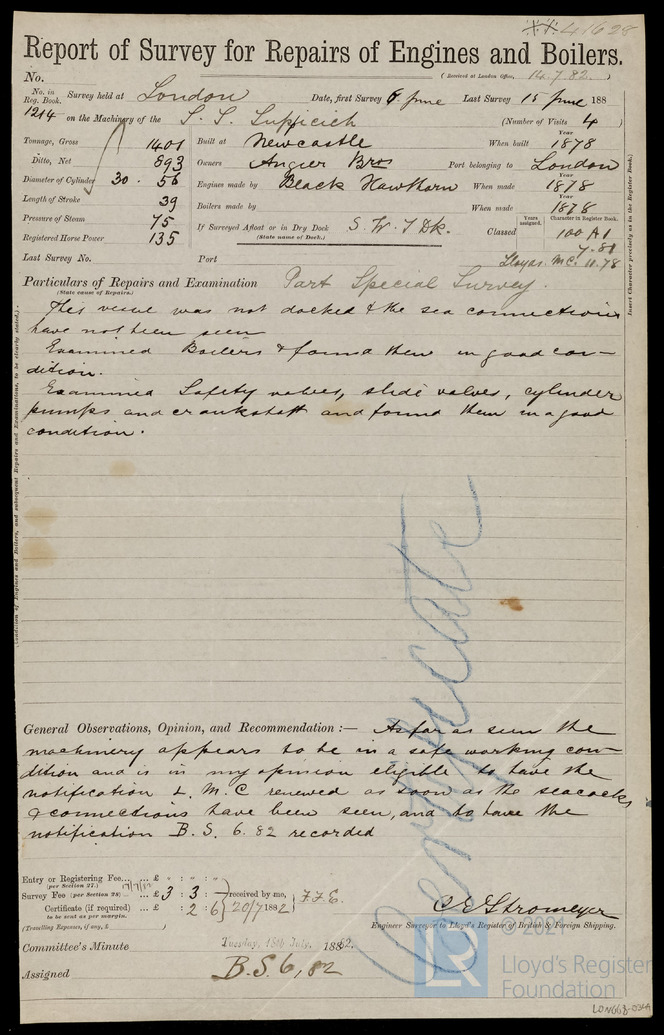 41628
Report of Survey for Repairs of Engines and Boilers.
No.
(Received at London Office, 14.7.82.)
No. in Reg. Book. Survey held at London Date, first Survey 6 June Last Survey 15 June 188
1214 on the Machinery of the S. S. (Number of Visits 4)
Tonnage, Gross 1401 Built at Newcastle When built Year 1878
Ditto, Net 893 Owners Angier Bros Port belonging to London
Diameter of Cylinder 30 . 56 Engines made by Black Hawthorn When made Year 1878
Length of Stroke 39 Boilers made by When made Year 1878
Pressure of Steam 75 If Surveyed Afloat or in Dry Dock S. W. I Dk. Classed Years assigned. Character in Register Book. 100 A1
Registered Horse Power 135 (State name of Dock.) 7.81
Last Survey No. Port Lloyds M.C. 11.78
Insert Character precisely as in the Register Book.
Particulars of Repairs and Examination Part Special Survey.
(State cause of Repairs.)
This vessel was not docked & the sea connections
have not been seen
Examined Boilers & found them in good con-
dition.
Examined Safety valves, slide valves, cylinder
pumps and crankshaft and found them in a good
condition.
(Condition of Engines and Boilers, and subsequent Repairs and Examinations, to be clearly stated.)
Certificate
General Observations, Opinion, and Recommendation :— As far as seen the
machinery appears to be in a safe working con-
dition and is in my opinion eligible to have the
notification L. M. C renewed as soon as the seacocks
& connections have been seen, and to have the
notification B. S. 6. 82 recorded
Entry or Registering Fee... ... £ " : " : "
(per Section 27.) 17/7/82
Survey Fee (per Section 28) ... £ 3 : 3 : received by me,
Certificate (if required) ... £ : 2 : 6 20/7 1882 F.F.E.
to be sent as per margin.
(Travelling Expenses, if any, £ )
C E Stromeyer
Engineer Surveyor to Lloyd's Register of British & Foreign Shipping.
Committee's Minute Tuesday, 18th July, 1882.
Assigned B.S. 6, 82
© 2021
LR
Lloyd's Register
Foundation
LON668-0314